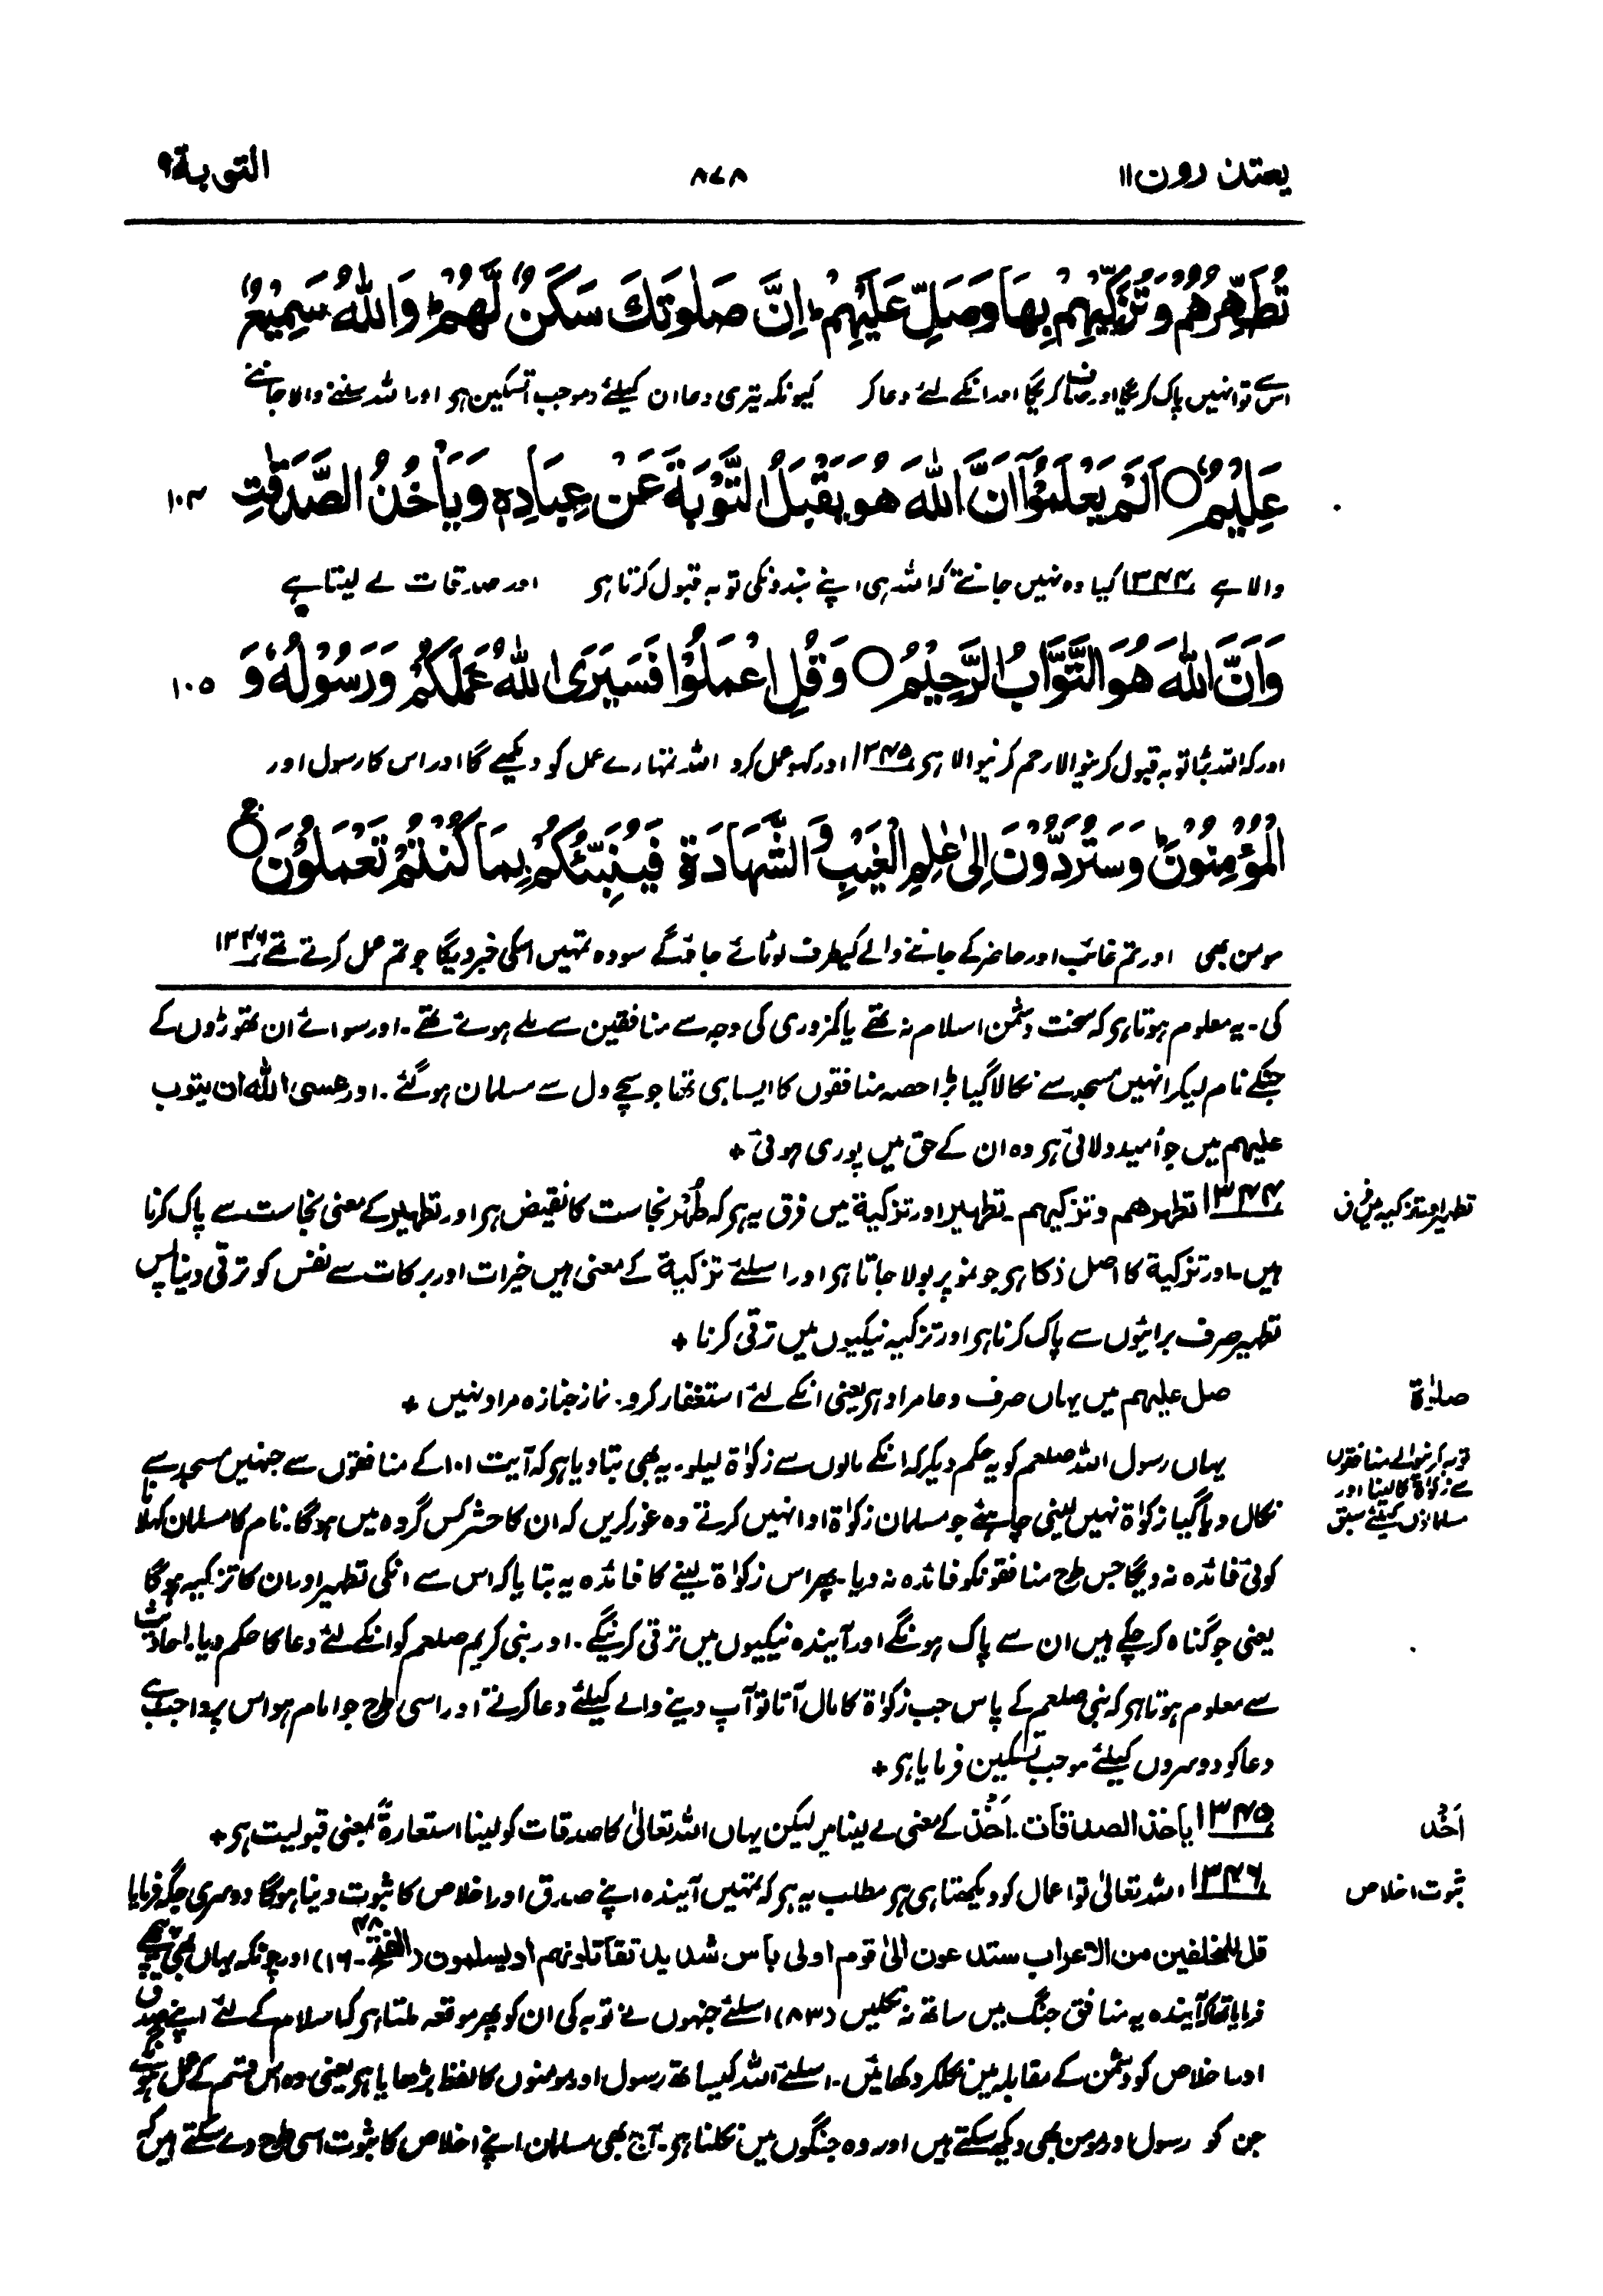 یعتذرون ۱۱
۸۷۸
التوبة ۹
تُطَهِّرُهُمْ وَتُزَكِّيْهِمْ بِهَا وَصَلِّ عَلَيْهِمْ ؕ اِنَّ صَلٰوتَكَ سَكَنٌ لَّهُمْ ؕ وَاللّٰهُ سَمِيْعٌ
اس سے تو انہیں پاک کریگا اور صاف کریگا اور انکے لئے دعا کر کیونکہ تیری دعا ان کیلئے موجب تسکین ہی اور اللہ سننے والا جاننے
عَلِيْمٌ ○ اَلَمْ يَعْلَمُوْۤا اَنَّ اللّٰهَ هُوَ يَقْبَلُ التَّوْبَةَ عَنْ عِبَادِهٖ وَيَاْخُذُ الصَّدَقٰتِ ۱۰۴
والا ہے ۱۳۴۴ کیا وہ نہیں جانتے کہ اللہ ہی اپنے بندونکی توبہ قبول کرتا ہی اور صدقات لے لیتا ہے
وَاَنَّ اللّٰهَ هُوَ التَّوَّابُ الرَّحِيْمُ ○ وَقُلِ اعْمَلُوْا فَسَيَرَى اللّٰهُ عَمَلَكُمْ وَرَسُوْلُهٗ وَ ۱۰۵
اور کہ اللہ بڑا توبہ قبول کرنیوالا رحم کرنیوالا ہی ۱۳۴۵ اور کہو عمل کرو اللہ تمہارے عمل کو دیکھے گا اور اس کا رسول اور
الْمُؤْمِنُوْنَ ؕ وَسَتُرَدُّوْنَ اِلٰى عٰلِمِ الْغَيْبِ وَالشَّهَادَةِ فَيُنَبِّئُكُمْ بِمَا كُنْتُمْ تَعْمَلُوْنَ ○
مومن بھی اور تم غائب اور حاضر کے جاننے والے کیطرف لوٹائے جاؤگے سو وہ تمہیں اسکی خبر دیگا جو تم عمل کرتے تھے ۱۳۴۶
کی۔ یہ معلوم ہوتا ہی کہ سخت دشمن اسلام نہ تھے یا کمزوری کی وجہ سے منافقین سے ملے ہوئے تھے۔ اور سوائے ان تھوڑوں کے
جنکے نام لیکر انہیں مسجد سے نکالا گیا بڑا حصہ منافقوں کا ایسا ہی تھا جو سچے دل سے مسلمان ہو گئے۔ اور عسی اللہ ان یتوب
علیہم میں جو اُمید دلائی ہی وہ ان کے حق میں پوری ہوئی +
۱۳۴۴ تطہرھم و تزکیہم۔ تطہیر اور تزکیة میں فرق یہ ہی کہ طُہْر نجاست کا نقیض ہی اور تطہیر کے معنی نجاست سے پاک کرنا
تطہیر اور تزکیہ میں فرق
ہیں۔ اور تزکیة کا اصل زکا ہی جو نمو پر بولا جاتا ہی اور اسلئے تزکیة کے معنی ہیں خیرات اور برکات سے نفس کو ترقی دینا پس
تطہیر صرف برائیوں سے پاک کرنا ہی اور تزکیہ نیکیوں میں ترقی کرنا +
صل علیہم میں یہاں صرف دعا مراد ہی یعنی انکے لئے استغفار کرو۔ نماز جنازہ مراد نہیں +
صلٰوة
یہاں رسول اللہ صلعم کو یہ حکم دیکر کہ انکے مالوں سے زکوٰة لیلو۔ یہ بھی بتا دیا ہی کہ آیت ۱۰۱ کے منافقوں سے جنہیں مسجد سے
توبہ کرنیوالے منافقوں
سے زکوٰة کا لینا اور
مسلمانوں کیلئے سبق
نکال دیا گیا زکوٰة نہیں لینی چاہئے جو مسلمان زکوٰة ادا نہیں کرتے وہ غور کریں کہ ان کا حشر کس گروہ میں ہوگا۔ نام کا مسلمان کہلانا
کوئی فائدہ نہ دیگا جس طرح منافقونکو فائدہ نہ دیا۔ پھر اس زکوٰة لینے کا فائدہ یہ بتایا کہ اس سے انکی تطہیر اور ان کا تزکیہ ہوگا
یعنی جو گناہ کر چکے ہیں ان سے پاک ہونگے اور آیندہ نیکیوں میں ترقی کرینگے۔ اور نبی کریم صلعم کو انکے لئے دعا کا حکم دیا۔ احادیث
سے معلوم ہوتا ہی کہ نبی صلعم کے پاس جب زکوٰة کا مال آتا تو آپ دینے والے کیلئے دعا کرتے اور اسی طرح جو امام ہو اس پر واجب ہے
دعا کو دوسروں کیلئے موجب تسکین فرمایا ہی +
۱۳۴۵ یأخذ الصدقات۔ اَخْذ کے معنی لے لینا ہیں لیکن یہاں اللہ تعالیٰ کا صدقات کو لینا استعارةً بمعنی قبولیت ہی +
اَخْذ
۱۳۴۶ اللہ تعالیٰ تو اعمال کو دیکھتا ہی ہی مطلب یہ ہی کہ تمہیں آیندہ اپنے صدق اور اخلاص کا ثبوت دینا ہوگا دوسری جگہ فرمایا
ثبوت اخلاص
قل للمخلفین من الاعراب ستدعون الیٰ قوم اولی بأس شدید تقاتلونہم او یسلمون (الفتح ۴۸-۱۶) اور چونکہ یہاں بھی پیچھے
فرمایا تھا کہ آیندہ یہ منافق جنگ میں ساتھ نہ نکلیں (۸۳) اسلئے جنہوں نے توبہ کی ان کو پھر موقعہ ملتا ہی کہ اسلام کے لئے اپنے صدق
اور اخلاص کو دشمن کے مقابلہ میں نکلکر دکھائیں۔ اسلئے اللہ کیساتھ رسول اور مومنوں کا لفظ بڑھایا ہی یعنی وہ اس قسم کے عمل ہونگے
جن کو رسول اور مومن بھی دیکھ سکتے ہیں اور وہ جنگوں میں نکلنا ہی۔ آج بھی مسلمان اپنے اخلاص کا ثبوت اسی طرح دے سکتے ہیں کہ